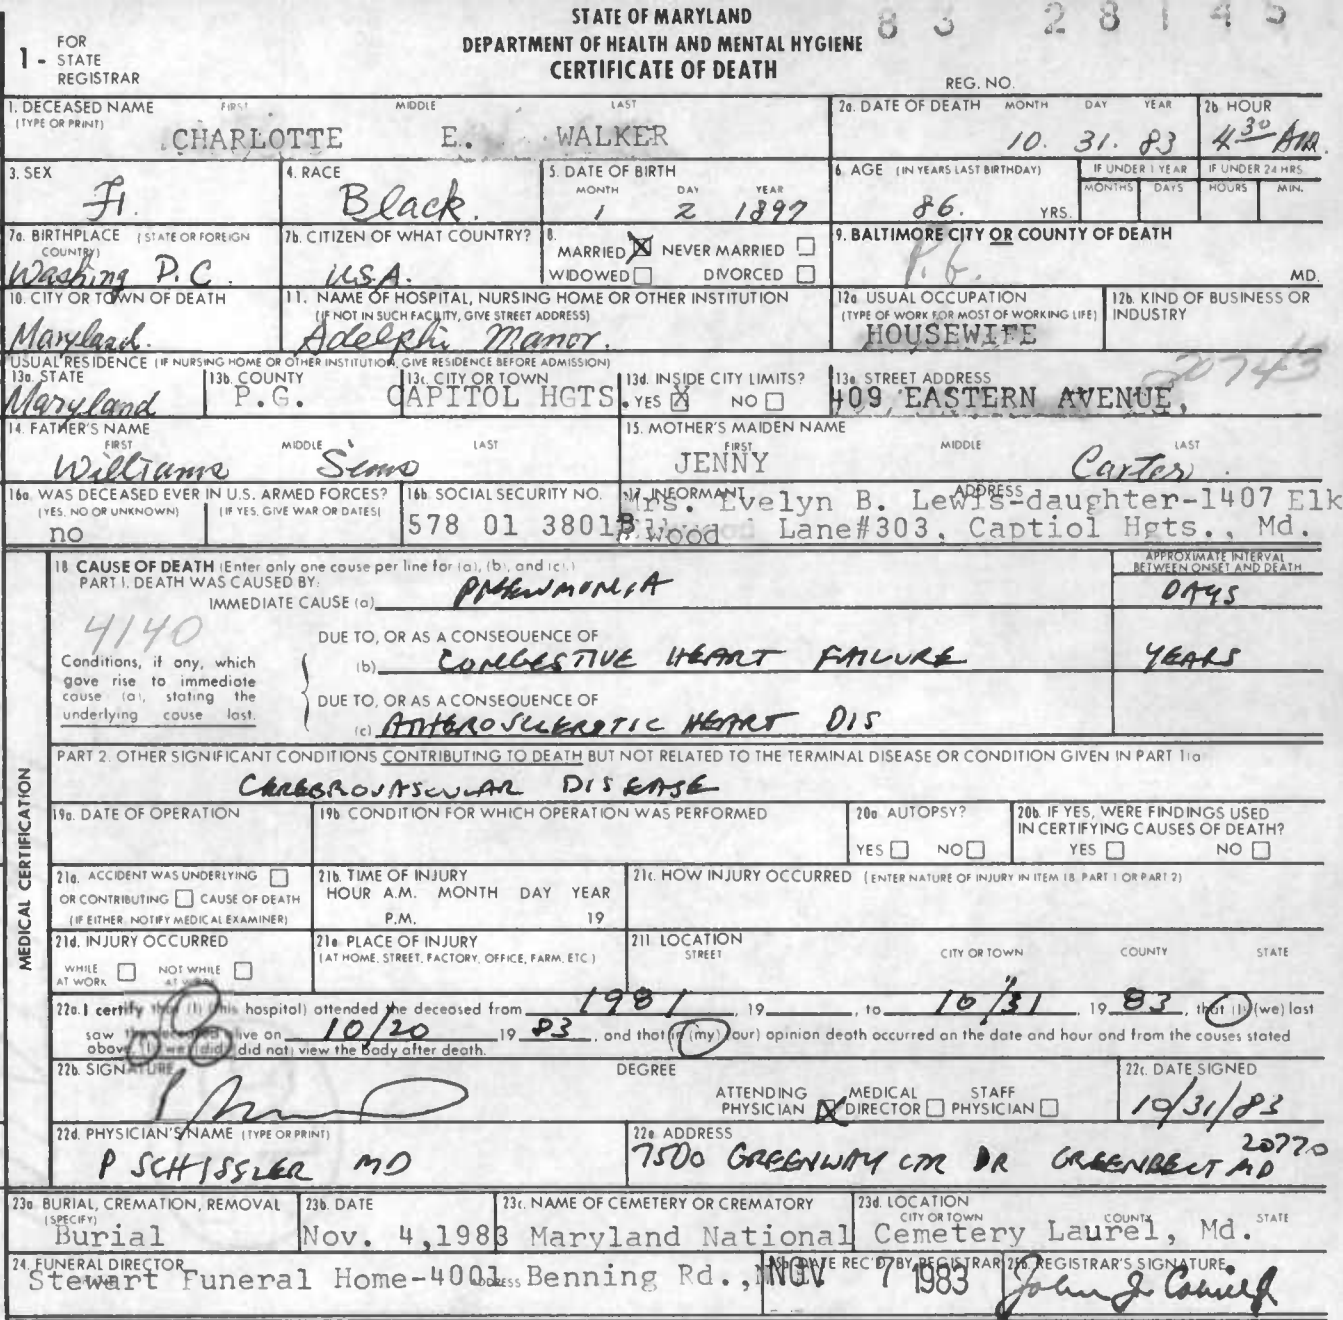 STATE OF MARYLAND
DEPARTMENT OF HEALTH AND MENTAL HYGIENE
CERTIFICATE OF DEATH
83 28145
1 - FOR STATE REGISTRAR
REG. NO.
1. DECEASED NAME (TYPE OR PRINT) FIRST MIDDLE LAST
CHARLOTTE E. WALKER
2a. DATE OF DEATH MONTH DAY YEAR
10. 31. 83
2b HOUR
4 30 AM.
3. SEX
F.
4. RACE
Black.
5. DATE OF BIRTH MONTH DAY YEAR
1 2 1897
6. AGE (IN YEARS LAST BIRTHDAY)
86. YRS.
IF UNDER 1 YEAR MONTHS DAYS
IF UNDER 24 HRS. HOURS MIN.
7a. BIRTHPLACE (STATE OR FOREIGN COUNTRY)
Washing D.C.
7b. CITIZEN OF WHAT COUNTRY?
U.S.A.
8. MARRIED X NEVER MARRIED
WIDOWED DIVORCED
9. BALTIMORE CITY OR COUNTY OF DEATH
P.G. MD.
10. CITY OR TOWN OF DEATH
Maryland.
11. NAME OF HOSPITAL, NURSING HOME OR OTHER INSTITUTION
(IF NOT IN SUCH FACILITY, GIVE STREET ADDRESS)
Adelphi Manor.
12a USUAL OCCUPATION
(TYPE OF WORK FOR MOST OF WORKING LIFE)
HOUSEWIFE
12b. KIND OF BUSINESS OR INDUSTRY
USUAL RESIDENCE (IF NURSING HOME OR OTHER INSTITUTION, GIVE RESIDENCE BEFORE ADMISSION)
13a. STATE
Maryland
13b. COUNTY
P.G.
13c. CITY OR TOWN
CAPITOL HGTS.
13d. INSIDE CITY LIMITS?
YES X NO
13e. STREET ADDRESS
20743
409 EASTERN AVENUE,
14. FATHER'S NAME FIRST MIDDLE LAST
Williams Sims
15. MOTHER'S MAIDEN NAME FIRST MIDDLE LAST
JENNY Carter.
16a. WAS DECEASED EVER IN U.S. ARMED FORCES?
(YES, NO OR UNKNOWN) (IF YES, GIVE WAR OR DATES)
no
16b. SOCIAL SECURITY NO.
578 01 3801B
17. INFORMANT ADDRESS
Mrs. Evelyn B. Lewis-daughter-1407 Elk
Wood Lane#303, Captiol Hgts., Md.
MEDICAL CERTIFICATION
18 CAUSE OF DEATH (Enter only one cause per line for (a), (b), and (c).)
PART I. DEATH WAS CAUSED BY:
APPROXIMATE INTERVAL BETWEEN ONSET AND DEATH
IMMEDIATE CAUSE (a) PNEUMONIA DAYS
4140
Conditions, if any, which gave rise to immediate cause (a), stating the underlying cause last.
DUE TO, OR AS A CONSEQUENCE OF
(b) CONGESTIVE HEART FAILURE YEARS
DUE TO, OR AS A CONSEQUENCE OF
(c) ATHEROSCLEROTIC HEART DIS
PART 2. OTHER SIGNIFICANT CONDITIONS CONTRIBUTING TO DEATH BUT NOT RELATED TO THE TERMINAL DISEASE OR CONDITION GIVEN IN PART 1(a)
CEREBROVASCULAR DISEASE
19a. DATE OF OPERATION
19b CONDITION FOR WHICH OPERATION WAS PERFORMED
20a AUTOPSY?
YES NO
20b. IF YES, WERE FINDINGS USED IN CERTIFYING CAUSES OF DEATH?
YES NO
21a. ACCIDENT WAS UNDERLYING
OR CONTRIBUTING CAUSE OF DEATH
(IF EITHER, NOTIFY MEDICAL EXAMINER)
21b. TIME OF INJURY
HOUR A.M. MONTH DAY YEAR
P.M. 19
21c. HOW INJURY OCCURRED (ENTER NATURE OF INJURY IN ITEM 18, PART 1 OR PART 2)
21d. INJURY OCCURRED
WHILE AT WORK NOT WHILE AT WORK
21e. PLACE OF INJURY
(AT HOME, STREET, FACTORY, OFFICE, FARM, ETC.)
21f. LOCATION
STREET CITY OR TOWN COUNTY STATE
22a. I certify that (I) (this hospital) attended the deceased from 1981, 19 , to 10/31 19 83, that (I) (we) last
saw the deceased alive on 10/20 19 83, and that (in (my) (our) opinion death occurred on the date and hour and from the causes stated
above. (I) (we) (did) (did not) view the body after death.
22b. SIGNATURE DEGREE
ATTENDING PHYSICIAN X MEDICAL DIRECTOR STAFF PHYSICIAN
22c. DATE SIGNED
10/31/83
22d. PHYSICIAN'S NAME (TYPE OR PRINT)
P SCHISSLER MD
22e ADDRESS
7500 GREENWAY CTR DR GREENBELT MD 20770
23a. BURIAL, CREMATION, REMOVAL (SPECIFY)
Burial
23b. DATE
Nov. 4,1983
23c. NAME OF CEMETERY OR CREMATORY
Maryland National
23d. LOCATION CITY OR TOWN COUNTY STATE
Cemetery Laurel, Md.
24. FUNERAL DIRECTOR ADDRESS
Stewart Funeral Home-4001 Benning Rd.,
25a. DATE REC'D BY REGISTRAR
NOV 7 1983
25b. REGISTRAR'S SIGNATURE